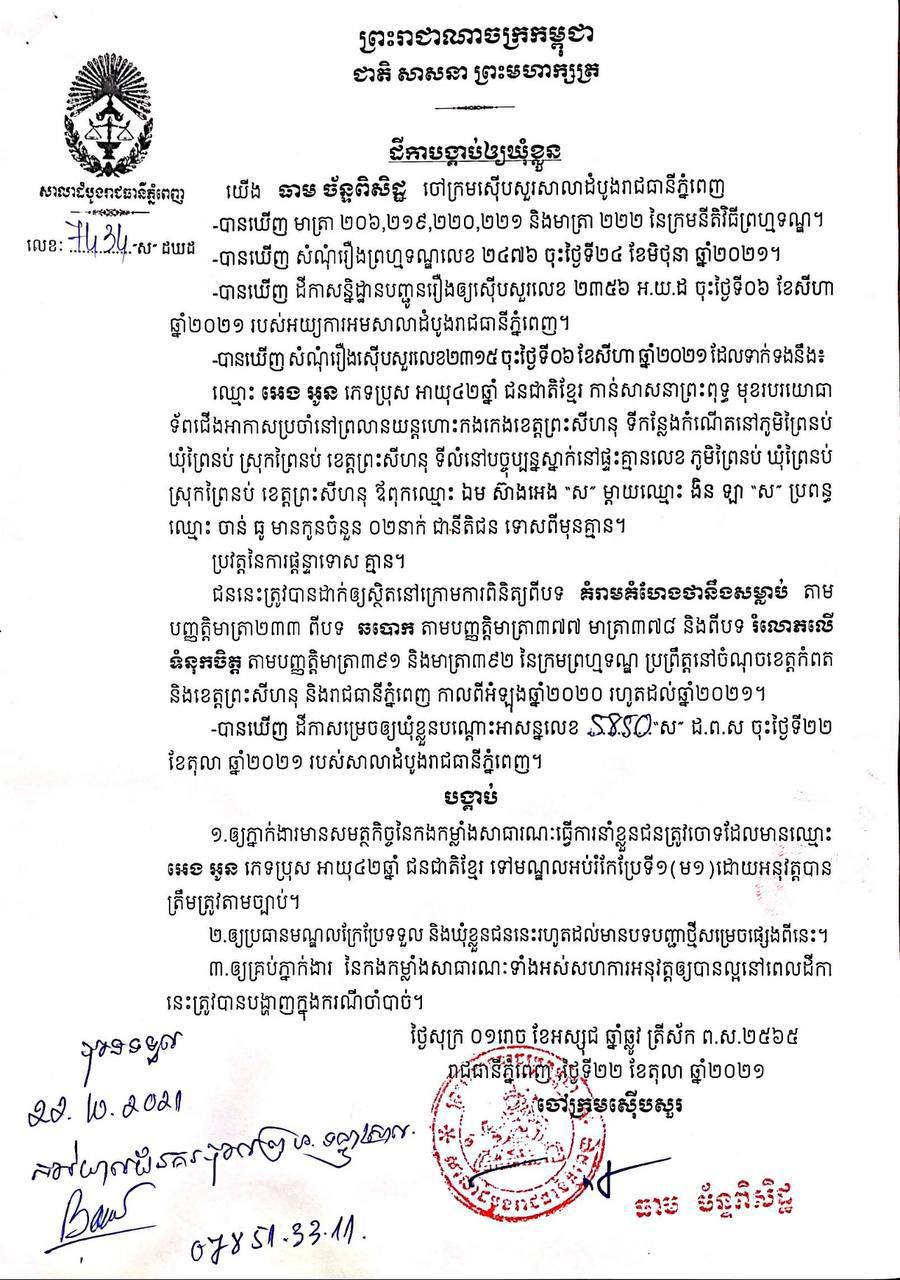 ព្រះរាជាណាចក្រកម្ពុជា
ជាតិ សាសនា ព្រះមហាក្សត្រ
ដីកាបង្គាប់ឲ្យឃុំខ្លួន
សាលាដំបូងរាជធានីភ្នំពេញ
លេខៈ 7434-ស ដឃដ
យើង ធាម ច័ន្ទពិសិដ្ឋ ចៅក្រមស៊ើបសួរសាលាដំបូងរាជធានីភ្នំពេញ
-បានឃើញ មាត្រា ២០៦,២១៩,២២០,២២១ និងមាត្រា ២២២ នៃក្រមនីតិវិធីព្រហ្មទណ្ឌ។
-បានឃើញ សំណុំរឿងព្រហ្មទណ្ឌលេខ ២៤៧៦ ចុះថ្ងៃទី២៤ ខែមិថុនា ឆ្នាំ២០២១។
-បានឃើញ ដីកាសន្និដ្ឋានបញ្ជូនរឿងឲ្យស៊ើបសួរលេខ ២៣៥៦ អ.យ.ដ ចុះថ្ងៃទី០៦ ខែសីហា
ឆ្នាំ២០២១ របស់អយ្យការអមសាលាដំបូងរាជធានីភ្នំពេញ។
-បានឃើញ សំណុំរឿងស៊ើបសួរលេខ២៣១៥ ចុះថ្ងៃទី០៦ ខែសីហា ឆ្នាំ២០២១ ដែលទាក់ទងនឹង៖
ឈ្មោះ អេង អូន ភេទប្រុស អាយុ៤២ឆ្នាំ ជនជាតិខ្មែរ កាន់សាសនាព្រះពុទ្ធ មុខរបរយោធា
ទ័ពជើងអាកាសប្រចាំនៅព្រលានយន្តហោះកងកេងខេត្តព្រះសីហនុ ទីកន្លែងកំណើតនៅភូមិព្រៃនប់
ឃុំព្រៃនប់ ស្រុកព្រៃនប់ ខេត្តព្រះសីហនុ ទីលំនៅបច្ចុប្បន្នស្នាក់នៅផ្ទះគ្មានលេខ ភូមិព្រៃនប់ ឃុំព្រៃនប់
ស្រុកព្រៃនប់ ខេត្តព្រះសីហនុ ឪពុកឈ្មោះ ឯម ស៊ាងអេង “ស” ម្តាយឈ្មោះ ងិន ឡា “ស” ប្រពន្ធ
ឈ្មោះ ចាន់ ធូ មានកូនចំនួន ០២នាក់ ជានីតិជន ទោសពីមុនគ្មាន។
ប្រវត្តនៃការផ្តន្ទាទោស គ្មាន។
ជននេះត្រូវបានដាក់ឲ្យស្ថិតនៅក្រោមការពិនិត្យពីបទ គំរាមគំហែងថានឹងសម្លាប់ តាម
បញ្ញត្តិមាត្រា២៣៣ ពីបទ ឆបោក តាមបញ្ញត្តិមាត្រា៣៧៧ មាត្រា៣៧៨ និងពីបទ រំលោភលើ
ទំនុកចិត្ត តាមបញ្ញត្តិមាត្រា៣៩១ និងមាត្រា៣៩២ នៃក្រមព្រហ្មទណ្ឌ ប្រព្រឹត្តនៅចំណុចខេត្តកំពត
និងខេត្តព្រះសីហនុ និងរាជធានីភ្នំពេញ កាលពីអំឡុងឆ្នាំ២០២០ រហូតដល់ឆ្នាំ២០២១។
-បានឃើញ ដីកាសម្រេចឲ្យឃុំខ្លួនបណ្តោះអាសន្នលេខ 5850 “ស” ដ.ព.ស ចុះថ្ងៃទី២២
ខែតុលា ឆ្នាំ២០២១ របស់សាលាដំបូងរាជធានីភ្នំពេញ។
បង្គាប់
១.ឲ្យភ្នាក់ងារមានសមត្ថកិច្ចនៃកងកម្លាំងសាធារណៈធ្វើការនាំខ្លួនជនត្រូវចោទដែលមានឈ្មោះ
អេង អូន ភេទប្រុស អាយុ៤២ឆ្នាំ ជនជាតិខ្មែរ ទៅមណ្ឌលអប់រំកែប្រែទី១(ម១)ដោយអនុវត្តបាន
ត្រឹមត្រូវតាមច្បាប់។
២.ឲ្យប្រធានមណ្ឌលក្រែប្រែទទួល និងឃុំខ្លួនជននេះរហូតដល់មានបទបញ្ជាថ្មីសម្រេចផ្សេងពីនេះ។
៣.ឲ្យគ្រប់ភ្នាក់ងារ នៃកងកម្លាំងសាធារណៈទាំងអស់សហការអនុវត្តឲ្យបានល្អនៅពេលដីកា
នេះត្រូវបានបង្ហាញក្នុងករណីចាំបាច់។
ថ្ងៃសុក្រ ០១រោច ខែអស្សុជ ឆ្នាំឆ្លូវ ត្រីស័ក ព.ស.២៥៦៥
រាជធានីភ្នំពេញ ថ្ងៃទី២២ ខែតុលា ឆ្នាំ២០២១
ចៅក្រមស៊ើបសួរ
ធាម ច័ន្ទពិសិដ្ឋ
បានទទួល
22. 10. 2021
07851.33.11.